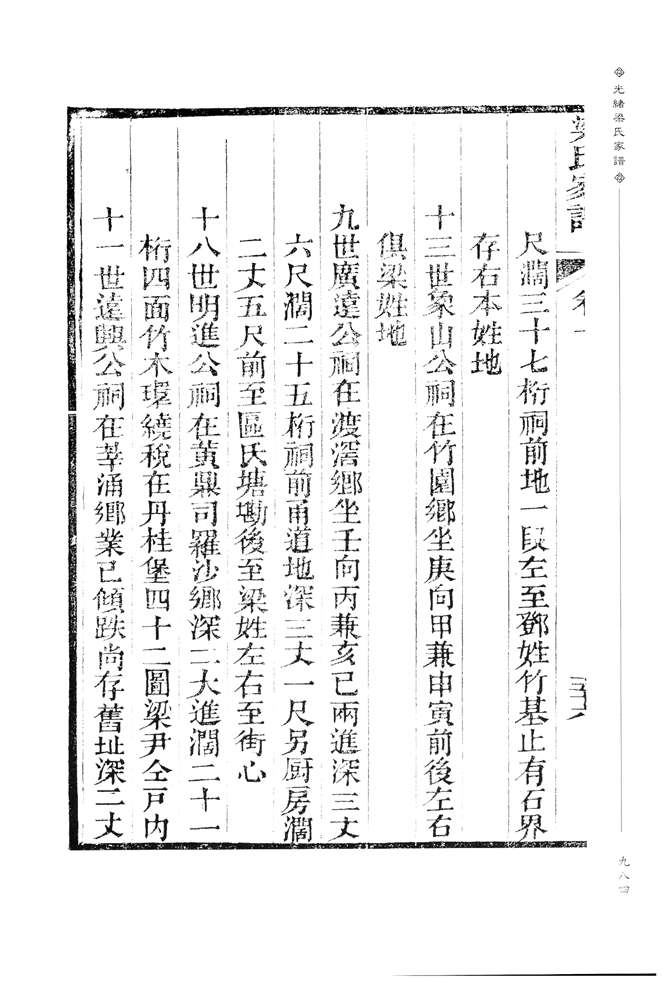 光緒梁氏家譜
九八四
梁氏家譜
卷一
尺濶三十七桁祠前地一段左至鄧姓竹基止有石界
存右本姓地
十三世象山公祠在竹園鄉坐庚向甲兼申寅前後左右
俱梁姓地
九世廣遠公祠在渡滘鄉坐壬向丙兼亥巳兩進深三丈
六尺濶二十五桁祠前甬道地深三丈一尺另厨房濶
二丈五尺前至區氏塘墈後至梁姓左右至街心
十八世明進公祠在黃鼎司羅沙鄉深二大進濶二十一
桁四面竹木環繞稅在丹桂堡四十二圖梁尹仝戶內
十一世遠興公祠在莘涌鄉業已傾跌尚存舊址深二丈